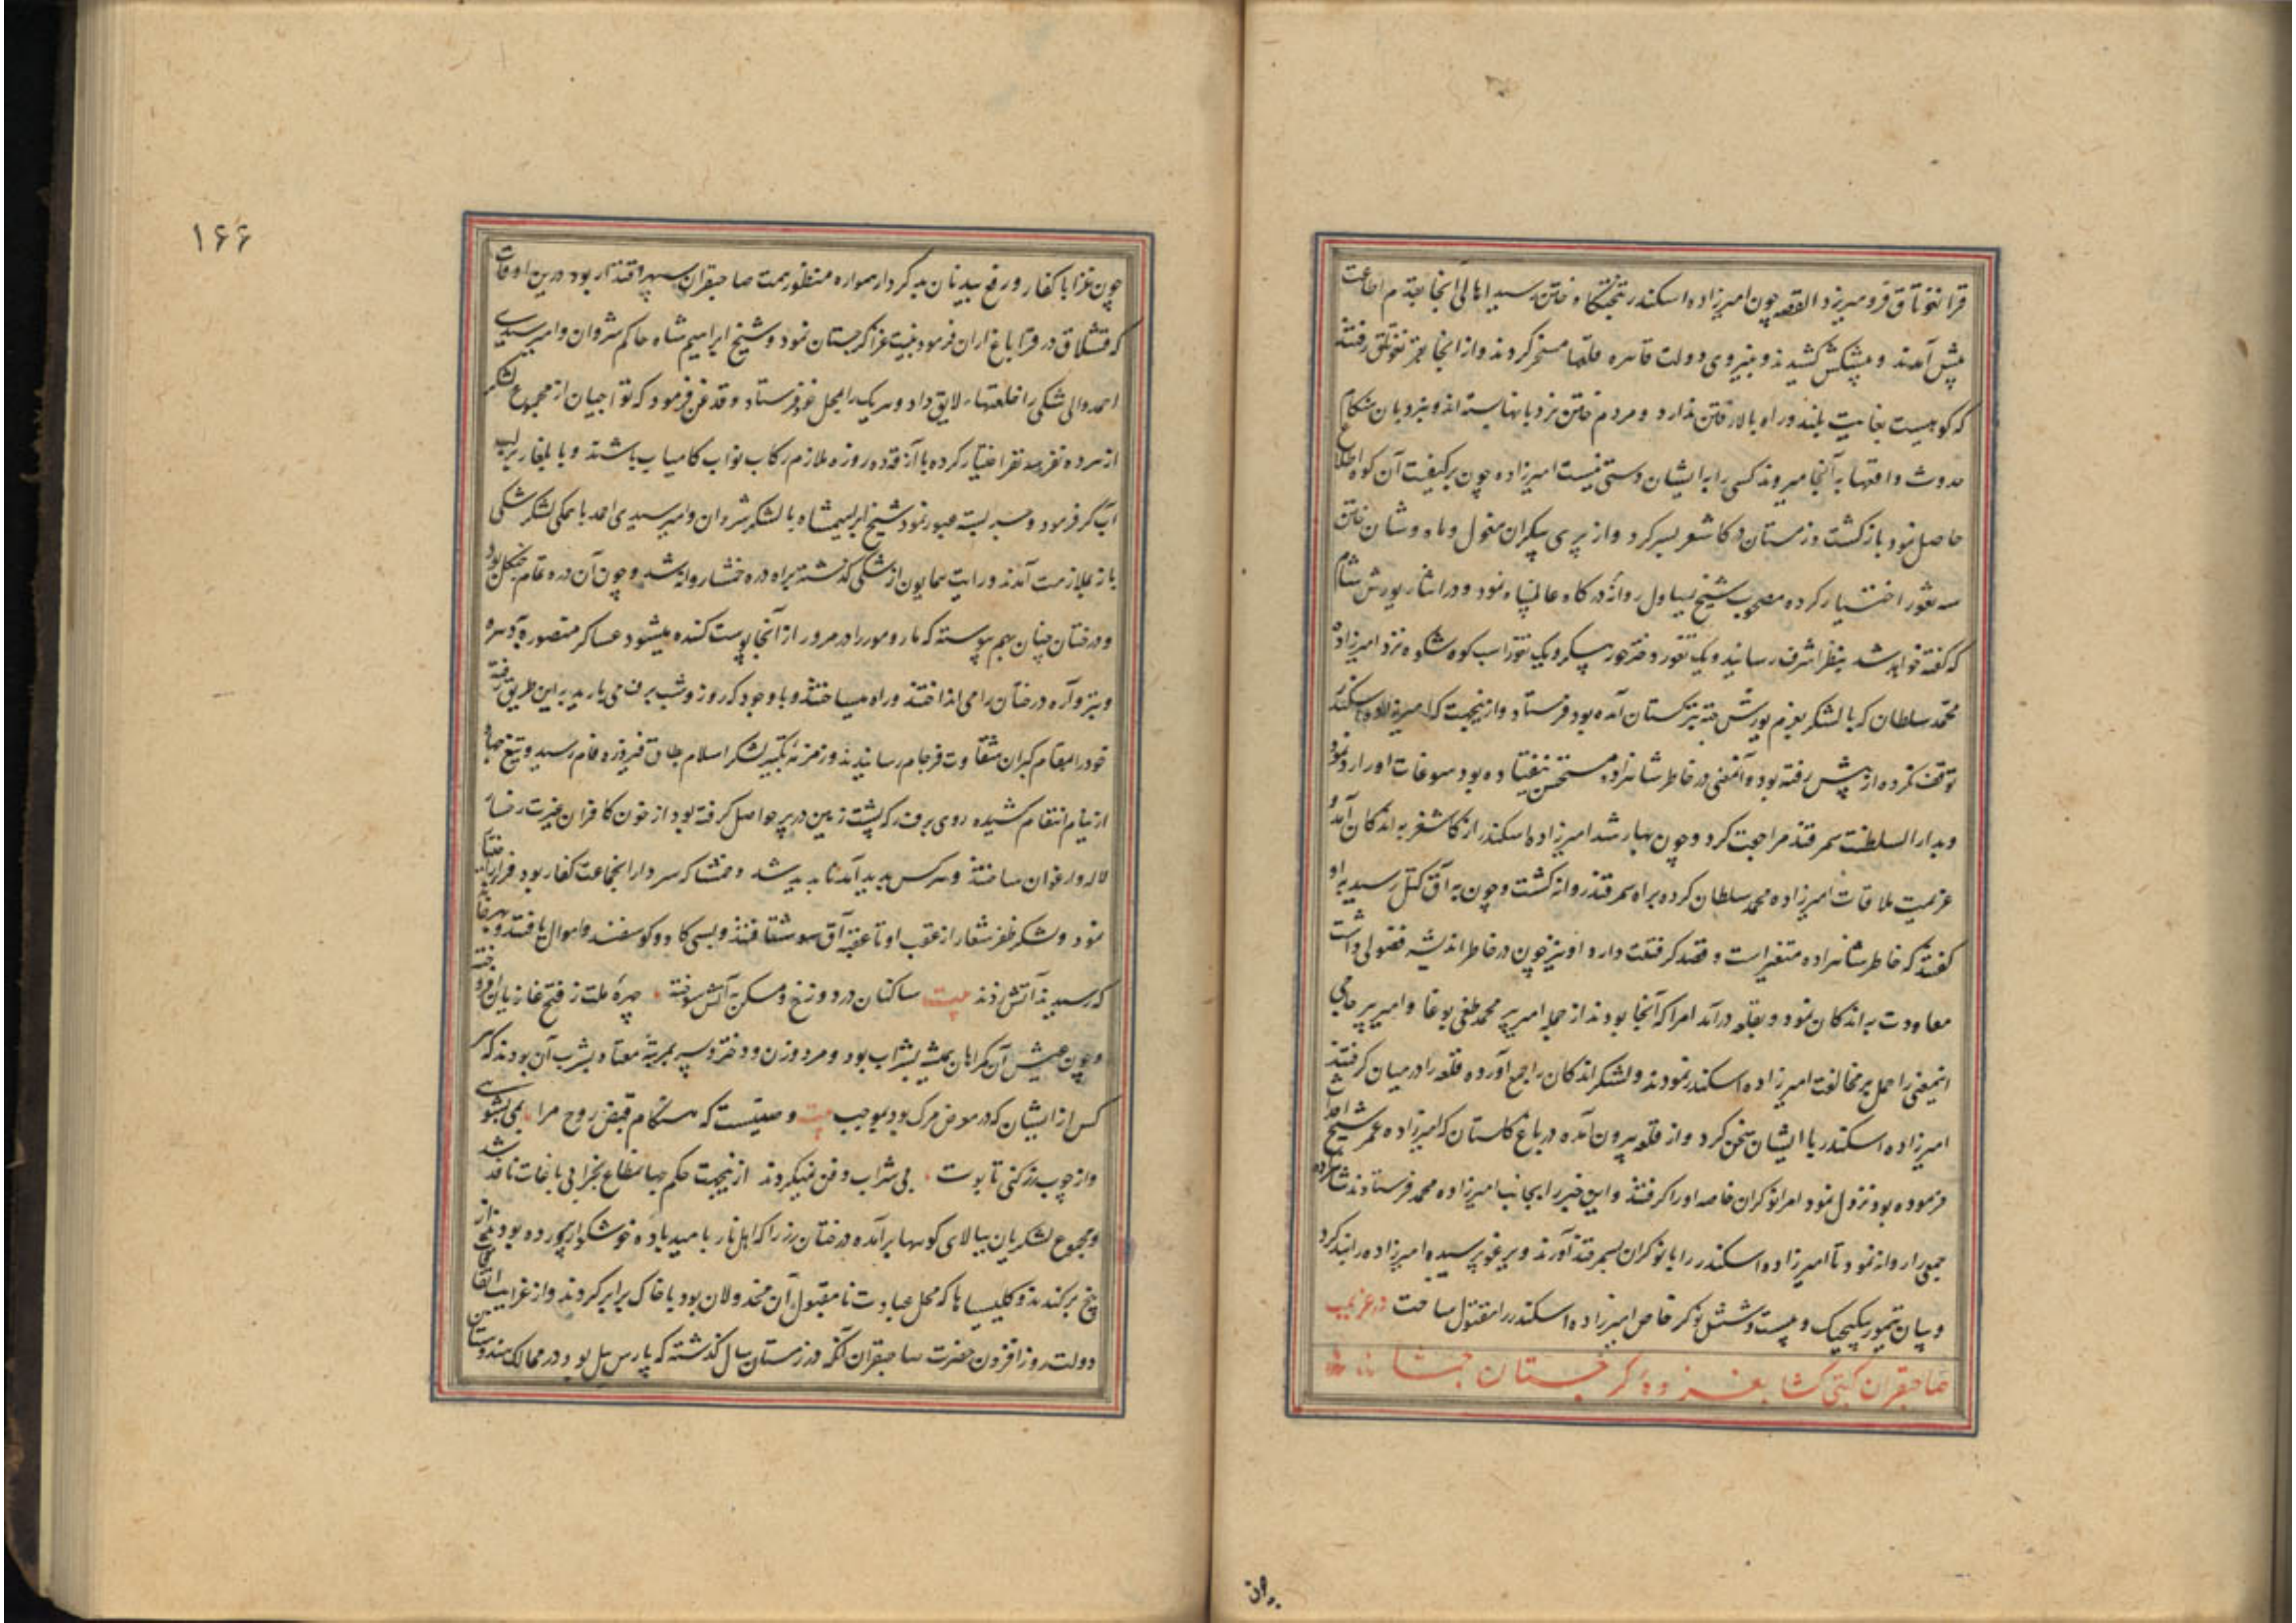 قرانغوتاق فرو میریزد القصه چون امیرزاده اسکندر بتختگاه ختن رسید اهالی انجا بقدم اطاعت
پیش آمدند و پیشکش کشیدند و بنیروی دولت قاهره قلعها مسخر کردند و از انجا بقرانغوتاق رفتند
که کوهیست بغایت بلند و راه بالا رفتن ندارد و مردم ختن نردبانها بسته اند و بنردبان هنگام
حدوث واقعها به آنجا میروند کسی را به ایشان دستی نیست امیرزاده چون بر کیفیت آن کوه اطلاع
حاصل نمود بازگشت و زمستان در کاشغر بسر کرد و از پری پیکران مغول و ماه وشان ختن
سه تقوز اختیار کرده مصحوب شیخ یساول روانه درگاه عالمپناه نمود و در اثناء یورش شام
که گفته خواهد شد بنظر اشرف رسانید و یک تقوز دختر حور پیکر و یک تقوز اسب کوه شکوه نزد امیرزاده
محمد سلطان که با لشکر بعزم یورش جته بترکستان آمده بود فرستاد و ازینجهت که امیرزاده اسکندر
توقف نکرده از پیش رفته بود و آنمعنی در خاطر شاهزاده مستحسن نیفتاده بود سوغات او را رد نمود
و بدار السلطنت سمرقند مراجعت کرد و چون بهار شد امیرزاده اسکندر از کاشغر به اندکان آمد و
عزیمت ملاقات امیرزاده محمد سلطان کرده براه سمرقند روانه گشت و چون به آق کتل رسید به او
گفتند که خاطر شاهزاده متغیر است و قصد گرفتنت دارد او نیز چون در خاطر اندیشه فضولی داشت
معاودت به اندکان نمود و بقلعه درآمد امرا که آنجا بودند از جمله امیر پیر محمد طغی بوغا و امیر پیر حاجی
اینمعنی را حمل بر مخالفت امیرزاده اسکندر نمودند و لشکر اندکان را جمع آورده قلعه را در میان گرفتند
امیرزاده اسکندر با ایشان سخن کرد و از قلعه بیرون آمده در باغ گلستان که امیرزاده عمر شیخ احداث
فرموده بود نزول نمود امرا نوکران خاصه او را گرفتند و این خبر را بجانب امیرزاده محمد فرستادند شاهزاده
جمعی را روانه نمود تا امیرزاده اسکندر را با نوکران بسمرقند آورند و یرغو پرسیده امیرزاده را بند کرد
و بیان تیمور بیکیجیک و بیست و شش نوکر خاص امیرزاده اسکندر را مقتول ساخت در عزیمت
صاحبقران گیتی گشا بغزوه گرجستان
۱۶۶
چون غزا با کفار و رفع بیدینان بدکردار همواره منظور همت صاحبقران سپهر اقتدار بود درین اوقات
که قشلاق در قراباغ اران فرمود نیت غزاء گرجستان نمود و شیخ ابراهیم شاه حاکم شروان و امیر سیدی
احمد والی شکی را خلعتهاء لایق داد و هریک را بمحل خود فرستاد و قدغن فرمود که تواجیان از مجموع لشکر
از هر ده نفر سه نفر اختیار کرده با آزقه ده روزه ملازم رکاب نواب کامیاب باشند و با یلغار بر لب
آب کر فرمود و جسر بسته عبور نمود شیخ ابراهیمشاه با لشکر شروان و امیر سیدی احمد با همگی لشکر شکی
باز بملازمت آمدند و رایت همایون از شکی گذشته براه دره خمشا روانه شد و چون آن دره تمام جنگل بود
و درختان چنان بهم پیوسته که مار و مور را در مرور از آنجا پوست کنده میشود عساکر منصوره به اره
و تبر و آره درختان را می انداختند و راه میساختند و با وجود که روز و شب برف می بارید به این طریق رفته
خود را بمقام گبران شقاوت فرجام رسانیدند و زمزمه تکبیر لشکر اسلام بطاق فیروزه فام رسید و تیغ جهاد
از نیام انتقام کشیده روی برف که پشت زمین در بر حواصل گرفته بود از خون کافران غیرت رخساره
لاله و ارغوان ساختند و هرکس پدید آمد ناپدید شد و خمشا که سردار انجماعت کفار بود فرار اختیار
نمود و لشکر ظفر شعار از عقب او تا عقبه آق سو شتافتند و بسی گاو و گوسفند و اموال یافتند و بهر خانه
که رسیدند آتش زدند بیت ساکنان در دوزخ و مسکن به آتش سوخته چهره ملت ز فتح غازیان افروخته
و چون عیش آن گمراهان همیشه بشراب بود و مرد و زن و دختر و پسر بمرتبه معتاد بشرب آن بودند که هر
کس از ایشان که در معرض مرگ بود بموجب بیت وصیتست که هنگام قبض روح مرا بمی بشوی
و از چوب رز کنی تابوت بی شراب دفن نمیکردند ازینجهت حکم جهانمطاع بخرابی باغات نافذ شد
و مجموع لشکریان ببالای کوهها برآمده درختان رز را که اهل نار با امید باده خوشگوار پرورده بودند از
بیخ برکندند و کلیسیاها که محل عبادت نامقبول آن مخذولان بود با خاک برابر کردند و از غرایب اتفاقات
دولت روز افزون حضرت صاحبقران آنکه در زمستان سال گذشته که پارس ئیل بود در ممالک هندوستان